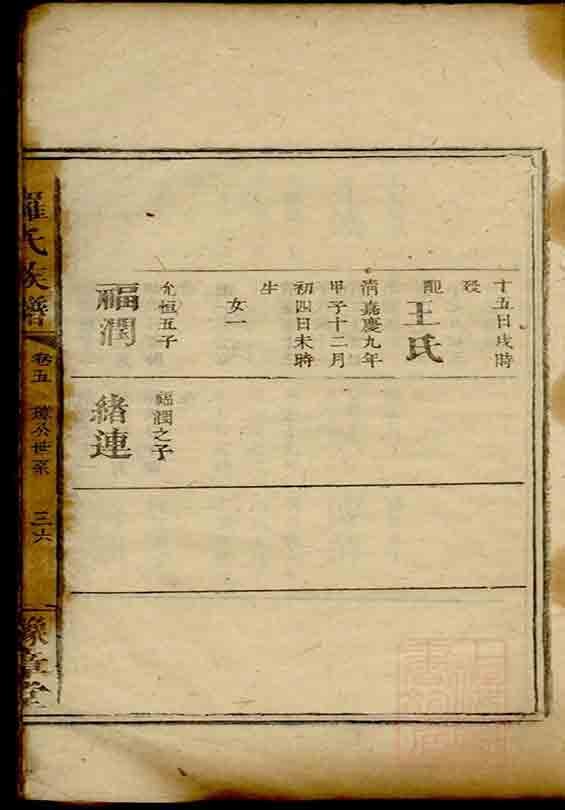 十五日戌時
歿
配
王氏
清嘉慶九年
甲子十二月
初四日未時
生
女一
允恒五子
福潤
福潤之子
緒連
羅氏族譜
卷五
公世系
三六
豫章堂